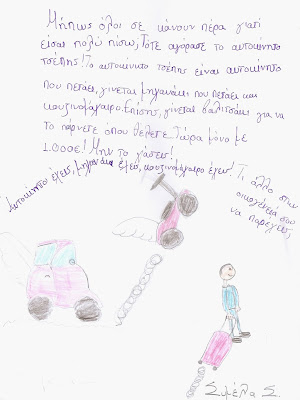 Μήπως όλοι σε κάνουν πέρα γιατί
είσαι πολύ πίσω; Τότε αγόρασε το αυτοκίνητο
τσέπης! Το αυτοκίνητο τσέπης είναι αυτοκίνητο
που πετάει, γίνεται μηχανάκι που πετάει και
κουζινομάγαιρο. Επίσης, γίνεται βαλιτσάκι για να
το πάρνετε όπου θέλετε. Τώρα μόνο με
1.000€! Μην το χάσεις!
Αυτοκίνητο έχει, μηχανάκι έχει, κουζινομάγαιρο έχει! Τι άλλο στην
οικογένειά σου
να παρέχεις;
Συμέλα Σ.